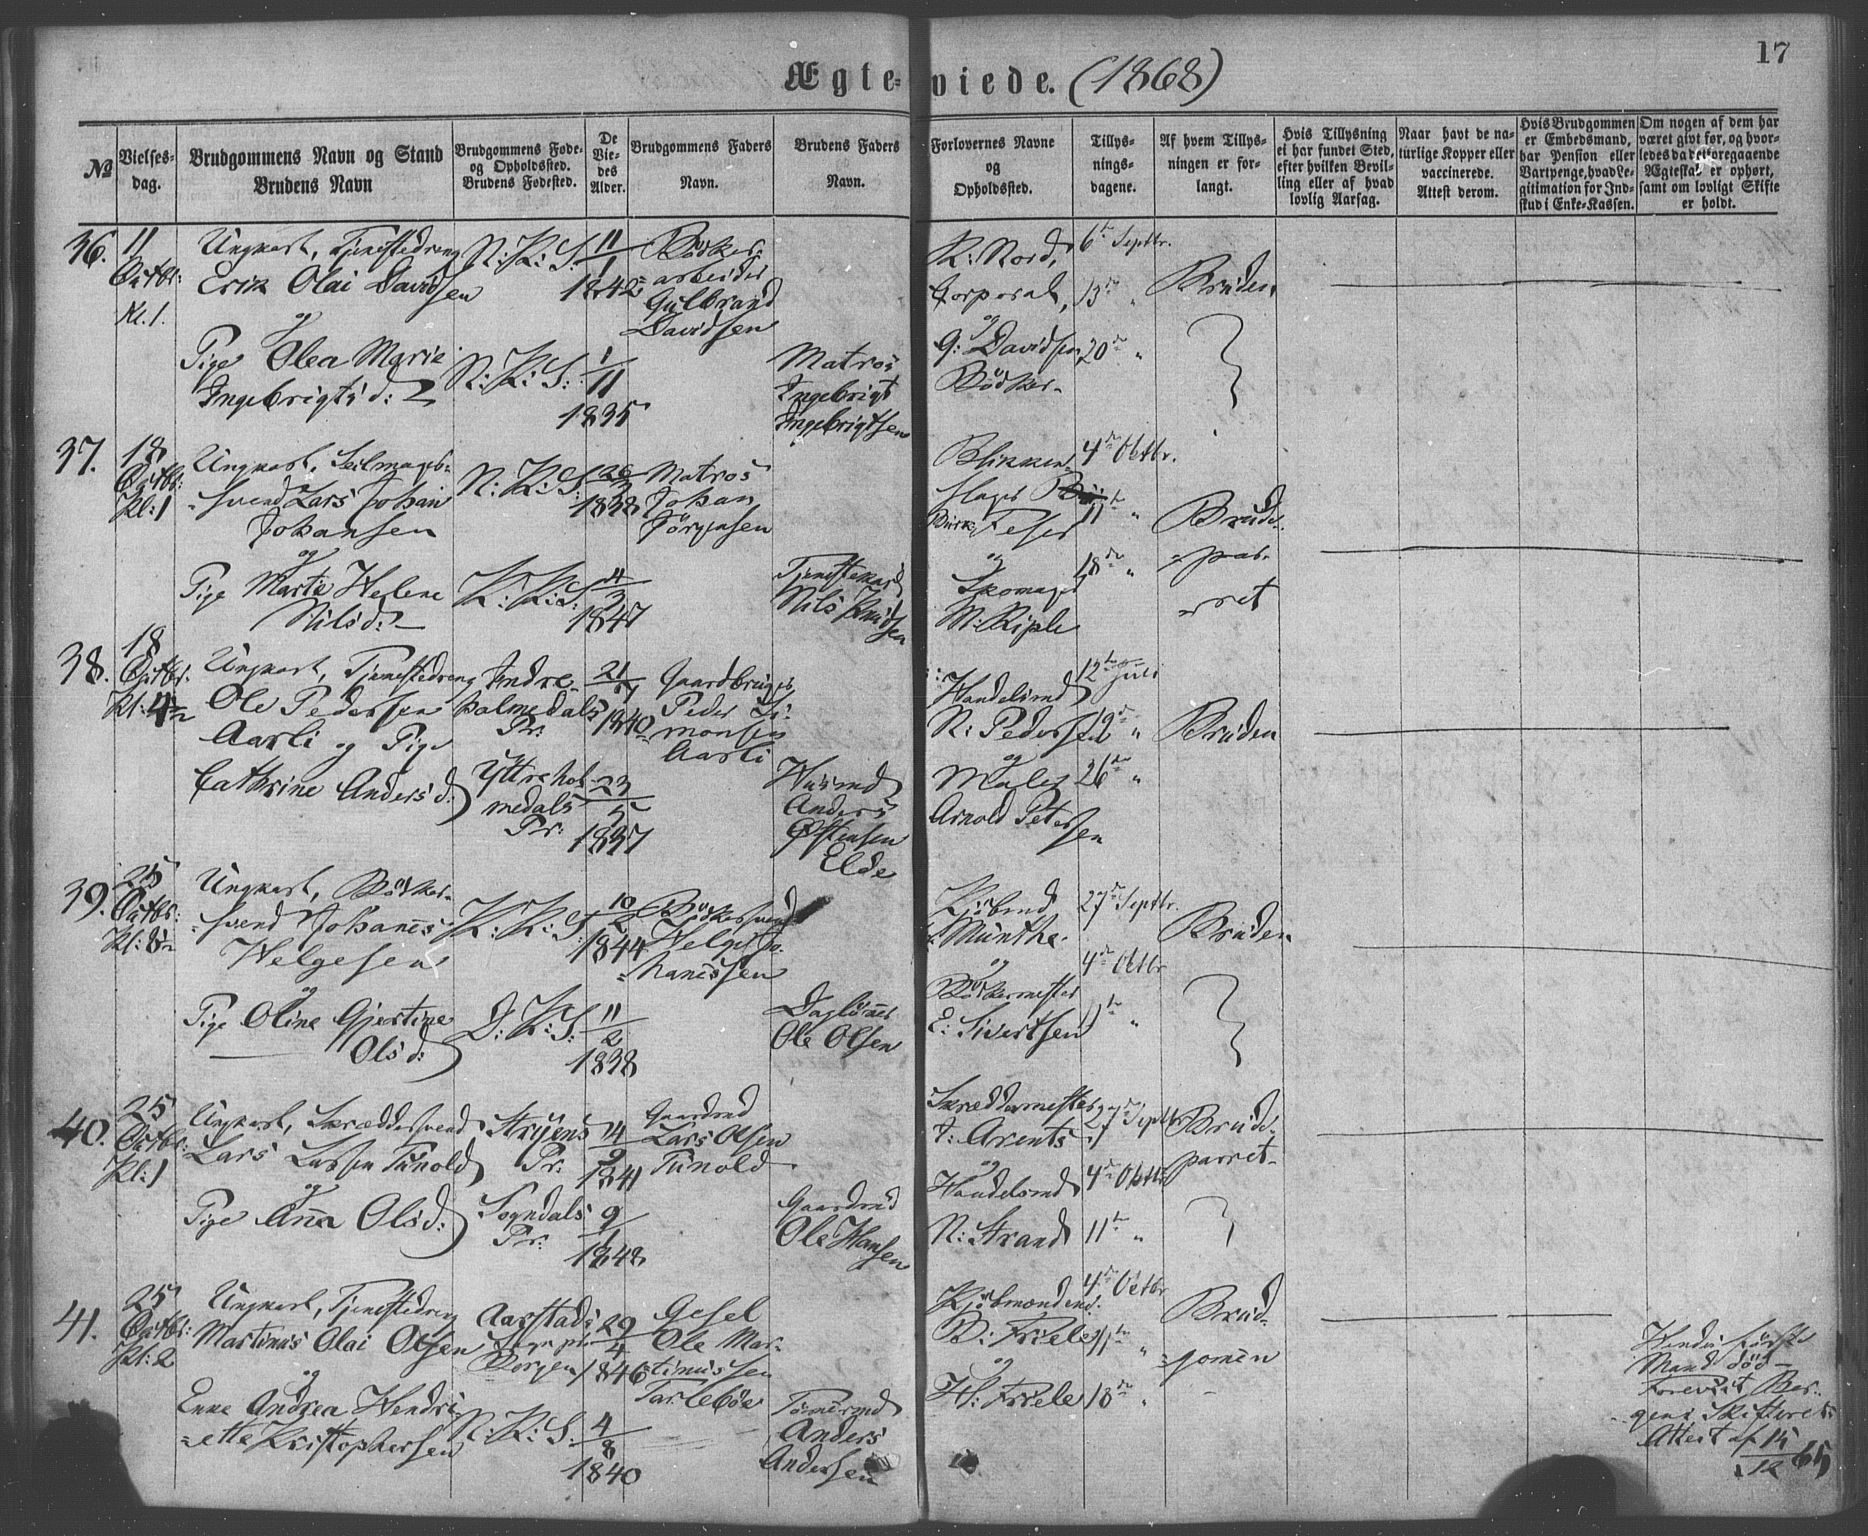 17
Ægteviede. (1868)
No
Vielsesdag.
Brudgommens Navn og Stand
Brudens Navn
Brudgommens Føde-
og Opholdssted.
Brudens Fødested.
De
Vie-
des
Alder.
Brudgommens Faders
Navn.
Brudens Faders
Navn.
Forlovernes Navne
og
Opholdssted.
Tillys-
nings-
dagene.
Af hvem Tillys-
ningen er for-
langt.
Hvis Tillysning
ei har fundet Sted,
efter hvilken Bevil-
ling eller af hvad
lovlig Aarsag.
Naar havt de na-
turlige Kopper eller
vaccinerede.
Attest derom.
Hvis Brudgommen
er Embedsmand,
har Pension eller
Vartpenge, hvad Le-
gitimation for Ind-
skud i Enke-Kassen.
Om nogen af dem har
været givt før, og hvor-
ledes da det foregaaende
Ægteskab er ophørt,
samt om lovligt Skifte
er holdt.
36.
11
Octbr:
Kl. 1.
Ungkarl, Tjenestedreng
Erik Olai Davidsen
og
Pige Olea Marie
Ingebrigtsd:
N: K: S:
11/1
1842
N: K: S:
1/11
1835
Bödker-
arbeider
Gulbrand
Davidsen
Matros
Ingebrigt
Ingebrigtsen
K: Nord,
Corporal,
og
G: Davidsen
Bödker
6te Septbr.
13de "
20de "
Bruden
37.
18
Octbr:
Kl: 1
Ungkarl, Seilmager-
svend Lars Johan
Johansen
og
Pige Marte Helene
Nilsd:
N: K: S:
1838
K: K: S:
4/3
1847
Matros
Johan
Jörgensen
Tjenestekarl
Nils Knudsen
Blikken-
slager
Feser
og
Skomager
M: Riple
4de Octbr.
11te "
18de "
Brude-
parret
38.
18
Octbr:
Kl: 4½
Ungkarl, Tjenestedreng
Ole Pedersen
Aarli og Pige
Cathrine Andersd:
Indre-
holmedals
Pr:
21
1840
Yttrehol-
medals
Pr:
23/5
1837
Gaardbruger
Peder Si-
monsen
Aarli
Husmd
Anders
Østensen
Elde
Handelsmd
N: Pedersen
og
Maler
Arnold Petersen
12te Juli
19de "
26de "
Bruden
39.
25
Octbr:
Kl: 8½
Ungkarl, Bödker-
svend Johannes
Helgesen
og
Pige Oline Gjertine
Olsd:
K: K: S:
10/2
1844
D: K: S:
11/2
1838
Bödkersvend
Helge Jo-
hannessen
Daglönner
Ole Olsen
Kjöbmd
Münthe
og
Bödkermester
E: Sivertsen
27de Septbr.
4de Octbr
11te "
Bruden
40.
25
Octbr:
Kl: 1
Ungkarl, Skræddersvend
Lars Larsen Tunold
og
Pige Anna Olsd:
Stryens
Pr:
14/9
1841
Sogndals
Pr:
9/1
1848
Gaardmd
Lars Olsen
Tunold
Gaardmd
Ole Hansen
Skræddermester
J: Arents
og
Handelsmd
N: Strand
27de Septbr
4de Octbr
11te "
Brude-
parret
41.
25
Octbr:
Kl: 2
Ungkarl, Tjenestedreng
Martinus Olai Olsen
og
Enke Andrea Hendri-
ette Kristophersen
Aarstads
Bergen
29/4
1846
N: K: S:
4/8
1840
Gesel
Ole Mar-
tinussen
Tarlebøe
Tömmermd
Anders
Andersen
Kjöbmændene
B: Friele
og
H: Friele
4de Octbr
11te "
18de "
Brud-
gomen
Hendes förste
Mand död
Forevist Ber-
gens Skifteret
Attest af 15/12 65